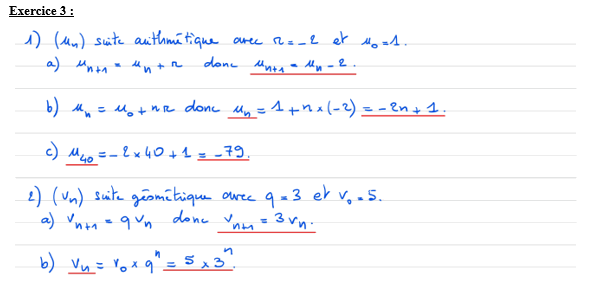 Exercice 3 :
1) (uₙ) suite arithmétique avec r = -2 et u₀ = 1.
a) uₙ₊₁ = uₙ + r donc uₙ₊₁ = uₙ - 2.
b) uₙ = u₀ + nr donc uₙ = 1 + n × (-2) = -2n + 1.
c) u₄₀ = -2 × 40 + 1 = -79.
2) (vₙ) suite géométrique avec q = 3 et v₀ = 5.
a) vₙ₊₁ = q vₙ donc vₙ₊₁ = 3 vₙ.
b) vₙ = v₀ × qⁿ = 5 × 3ⁿ.